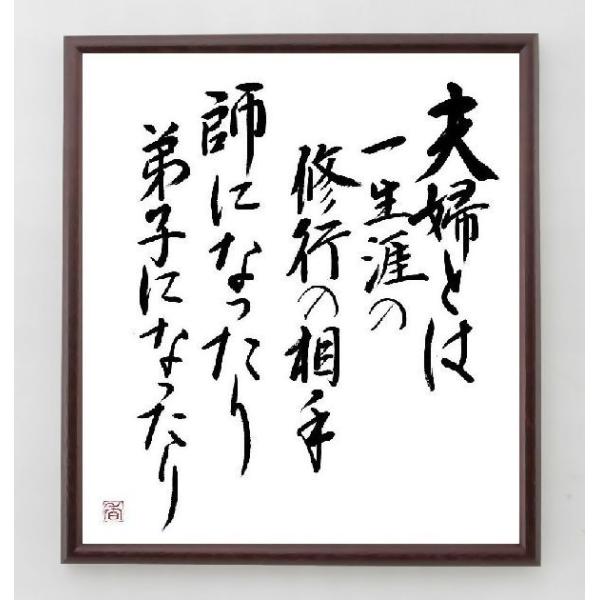 夫婦とは
一生涯の
修行の相手
師になったり
弟子になったり